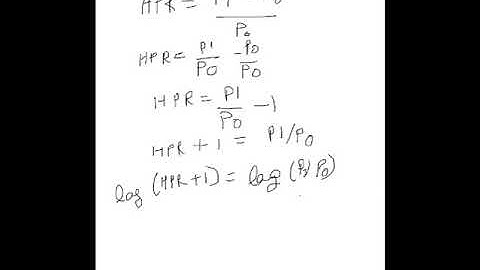 HPR =
P0
HPR = P1/P0 -P0/P0
HPR = P1/P0 -1
HPR + 1 = P1/P0
log (HPR+1) = log (P1/P0)